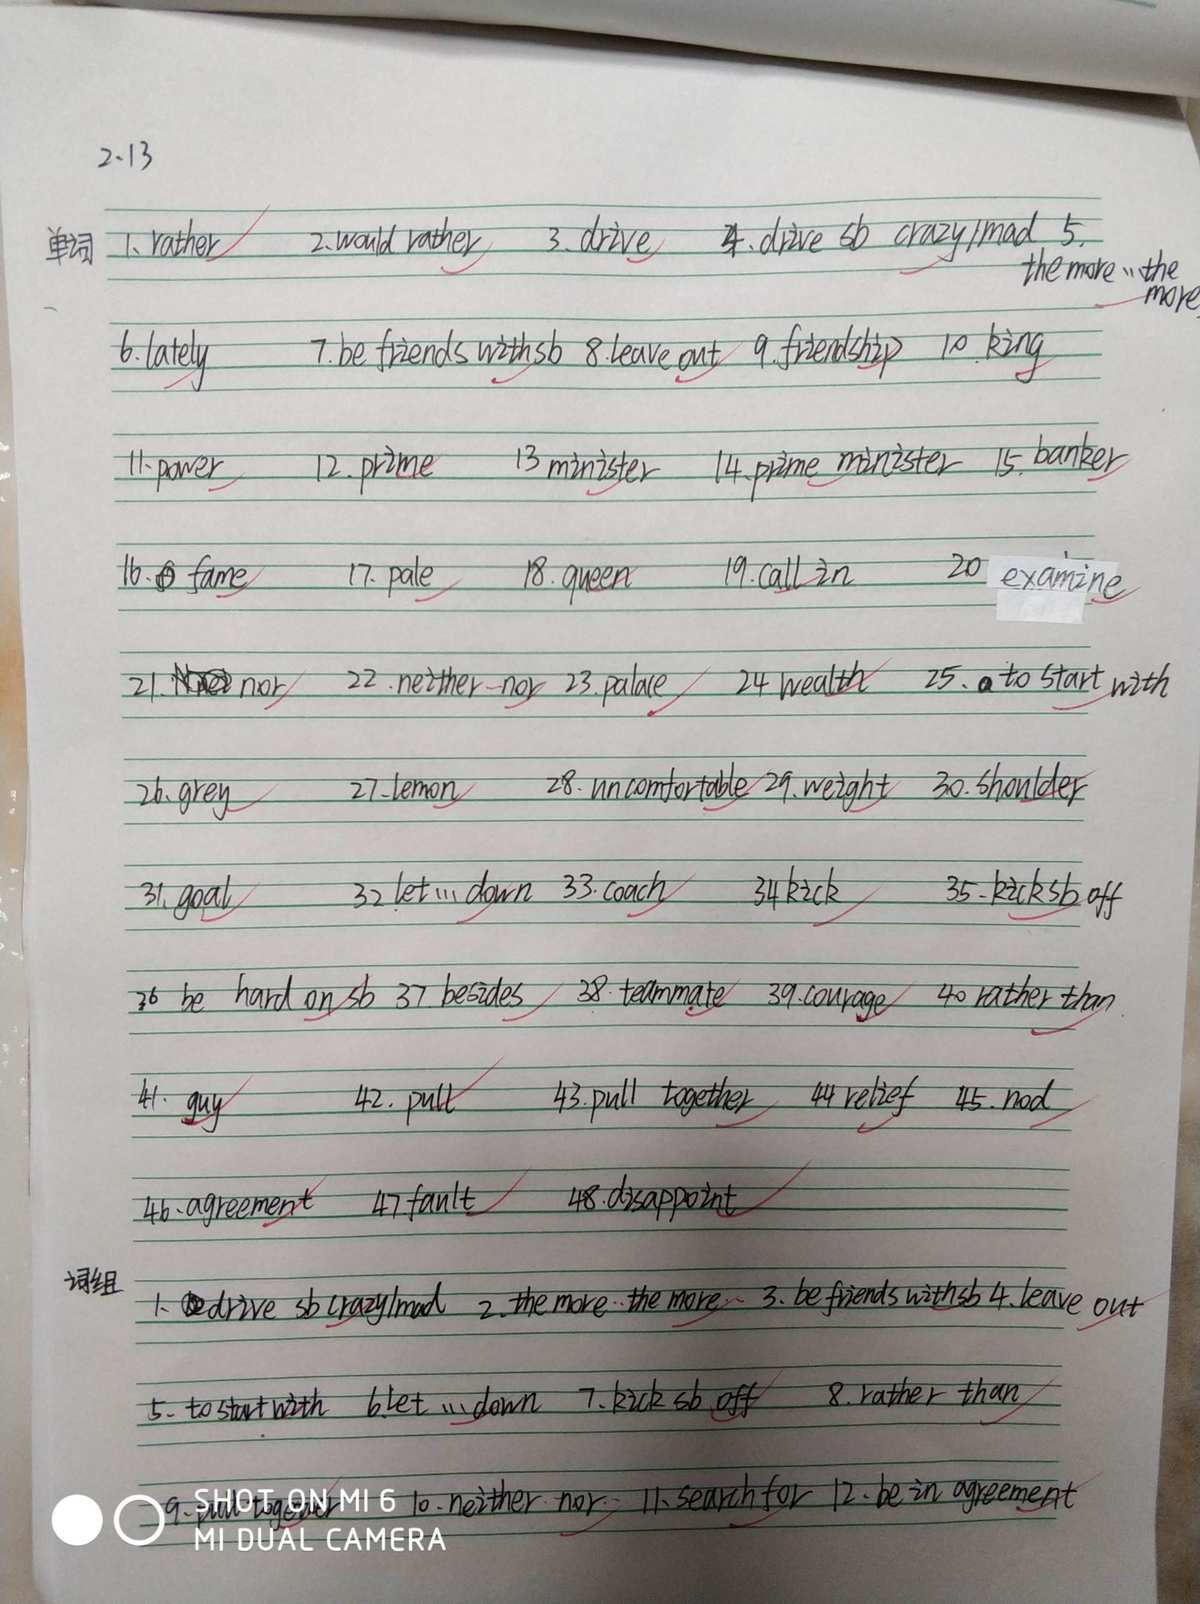 2.13
单词 1. rather 2. would rather 3. drive 4. drive sb crazy/mad 5.
the more...the
more
6. lately 7. be friends with sb 8. leave out 9. friendship 10. king
11. power 12. prime 13 minister 14. prime minister 15. banker
16. fame 17. pale 18. queen 19. call in 20 examine
21. nor 22. neither...nor 23. palace 24 wealth 25. to start with
26. grey 27. lemon 28. uncomfortable 29. weight 30. shoulder
31. goal 32 let...down 33. coach 34 kick 35. kick sb off
36 be hard on sb 37 besides 38. teammate 39. courage 40 rather than
41. guy 42. pull 43. pull together 44 relief 45. nod
46. agreement 47 fault 48. disappoint
词组
1. drive sb crazy/mad 2. the more...the more... 3. be friends with sb 4. leave out
5. to start with 6. let...down 7. kick sb off 8. rather than
9. pull together 10. neither...nor... 11. search for 12. be in agreement
SHOT ON MI 6
MI DUAL CAMERA